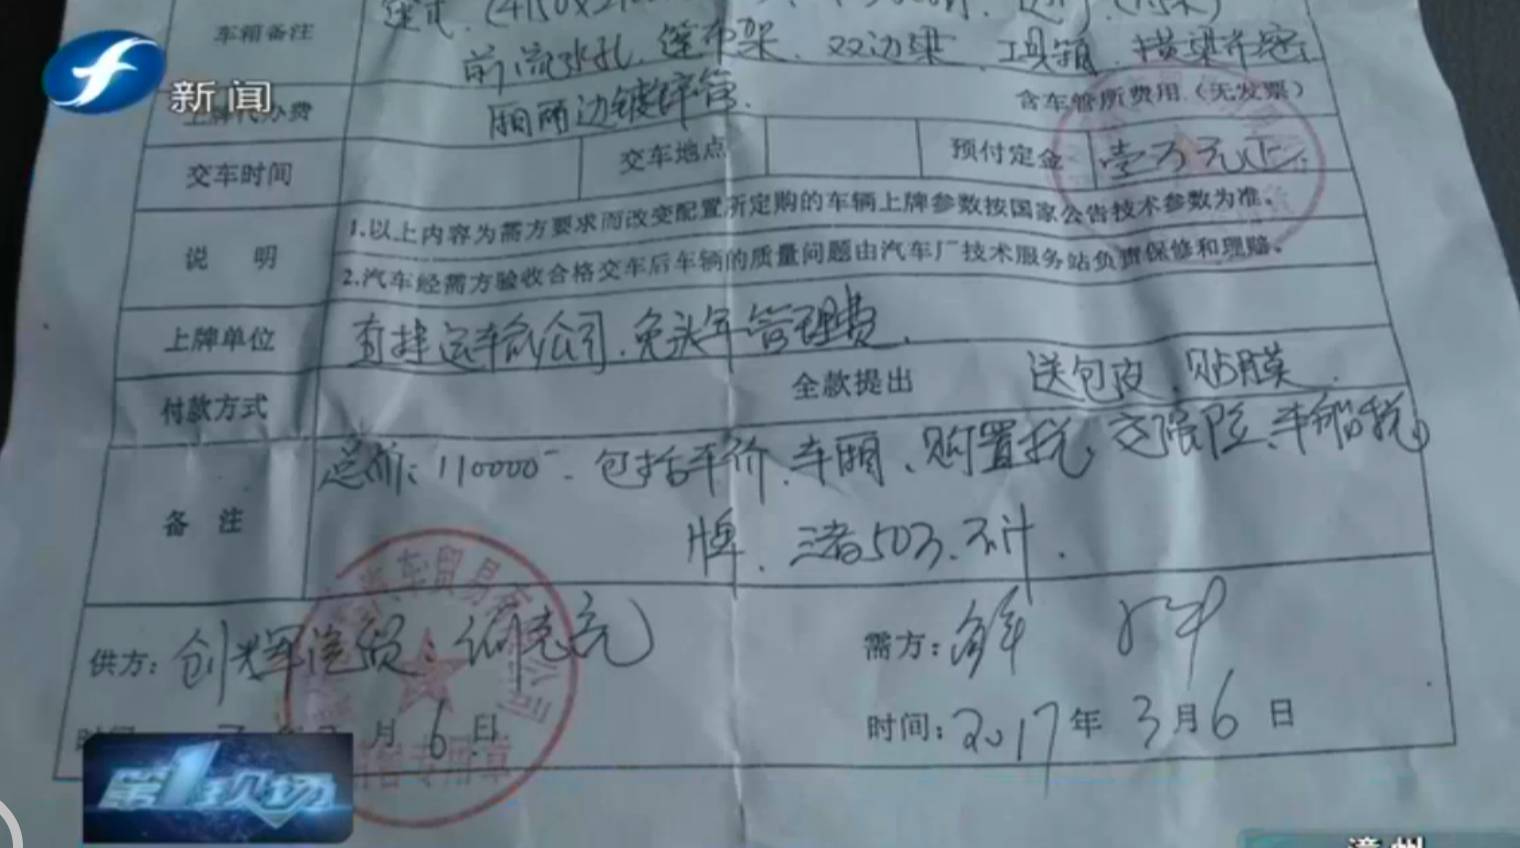 车箱备注
前流水孔、篷布架、双边梁、工具箱、横梁加密
新闻
上牌代办费 厢两边镀锌管、 含车管所费用(无发票)
交车时间 交车地点 预付定金 壹万元正
说 明 1.以上内容为需方要求而改变配置所定购的车辆上牌参数按国家公告技术参数为准。
2.汽车经需方验收合格交车后车辆的质量问题由汽车厂技术服务站负责保修和理赔。
上牌单位 直挂运输公司、免头年管理费、
付款方式 全款提出 送包皮、贴膜、
备 注 总价:110000- 包括车价、车厢、购置税、交强险、车船税
牌、三者50万、不计、
供方:创辉汽贸: 需方:
月6日 时间:2017年3月6日
汽车贸易
公司
专用章
第1现场
漳州